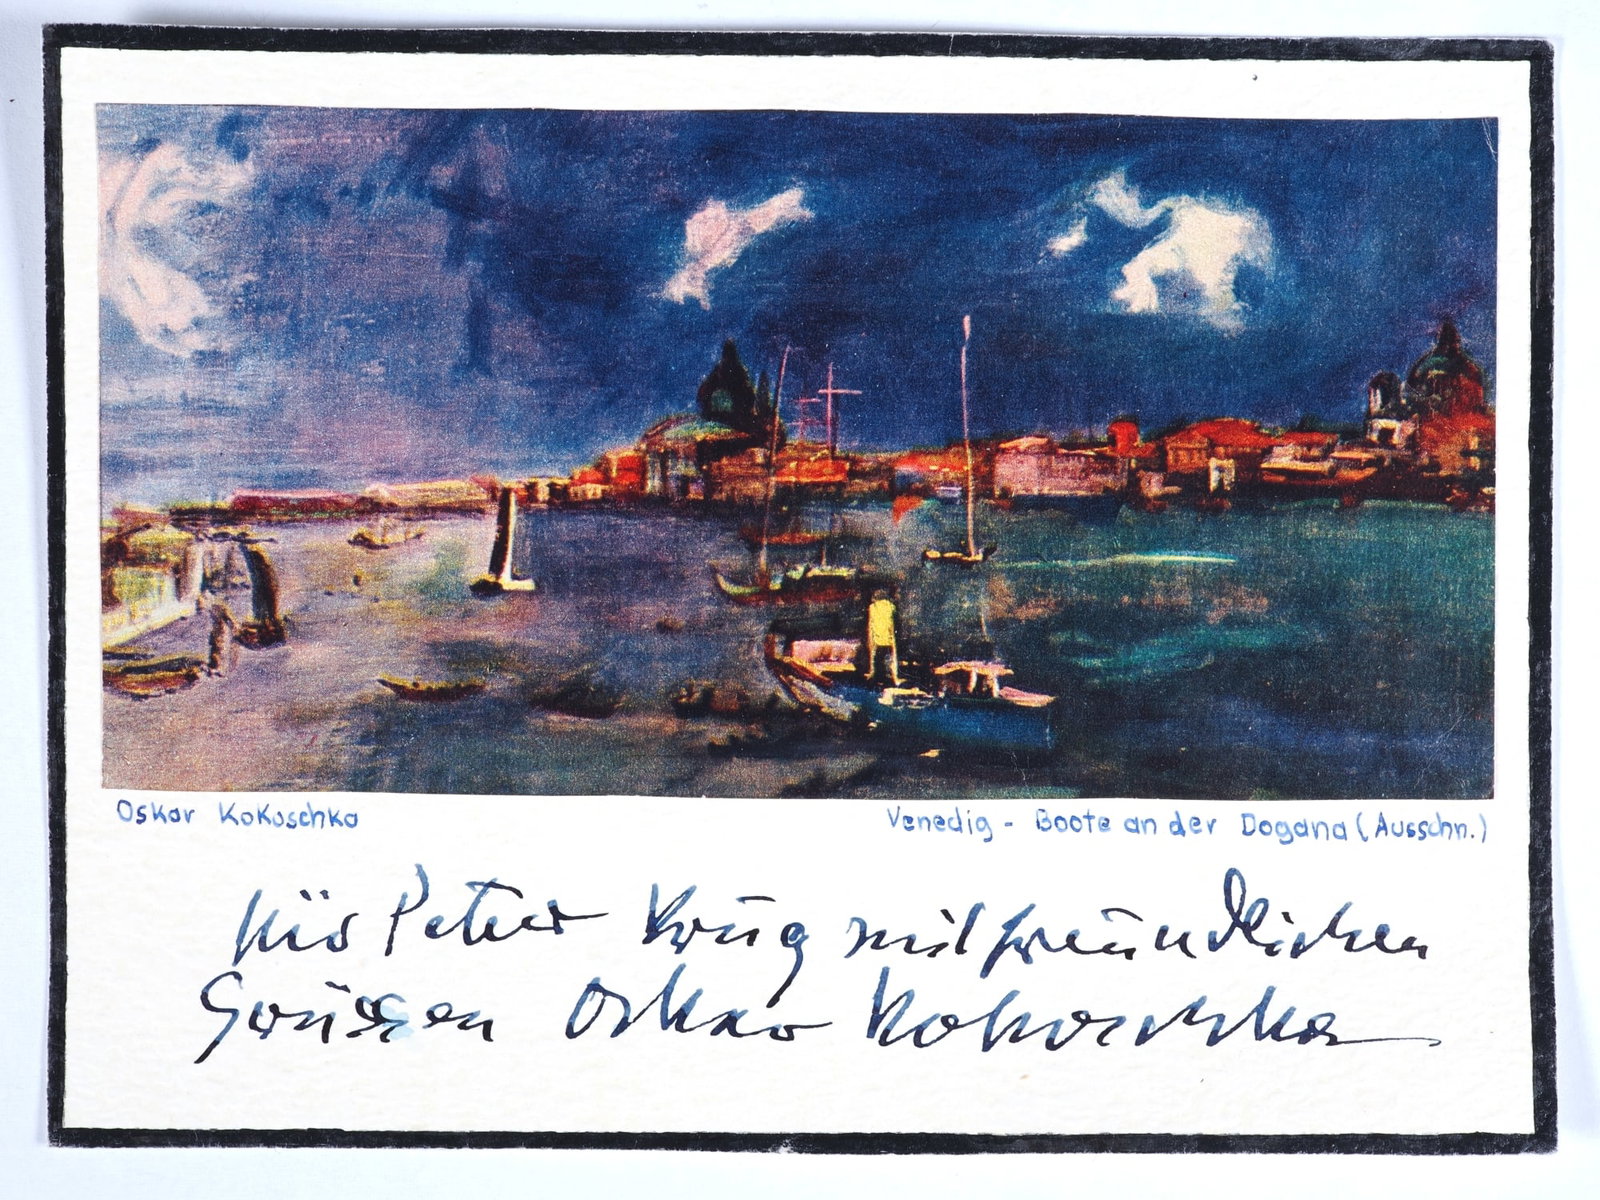 Oskar Kokoschka
Venedig - Boote an der Dogana (Ausschn.)
Für Peter Krüg mit freundlichen
Grüssen Oskar Kokoschka